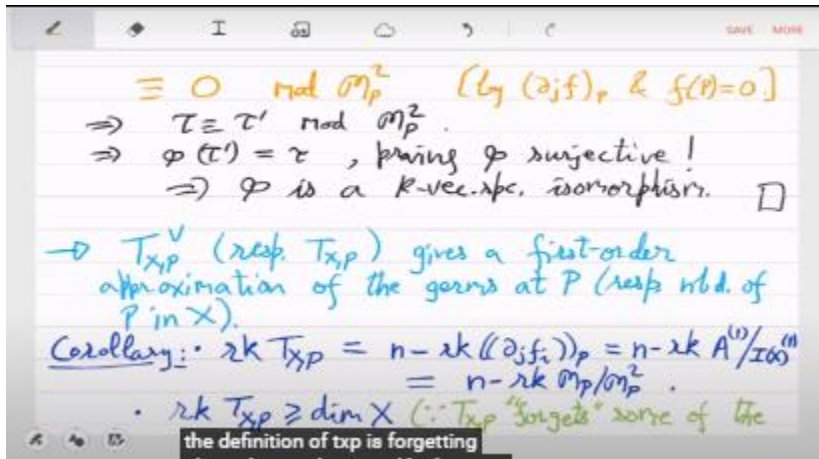 SAVE MORE
≡ 0 mod 𝔪_P^2 [by (∂_j f)_P & f(P)=0.]
⇒ τ ≡ τ' mod 𝔪_P^2.
⇒ φ(τ') = τ, proving φ surjective!
⇒ φ is a k-vec.spc. isomorphism. □
→ T_{X,P}^∨ (resp. T_{X,P}) gives a first-order
approximation of the germs at P (resp. nbd. of
P in X).
Corollary: · rk T_{X,P} = n - rk((∂_j f_i))_P = n - rk A^{(1)}/I(X)^{(1)}
= n - rk 𝔪_P/𝔪_P^2.
· rk T_{X,P} ≥ dim X (∵ T_{X,P} "forgets" some of the
the definition of txp is forgetting